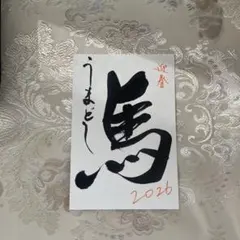 迎春
馬
うまどし
2026